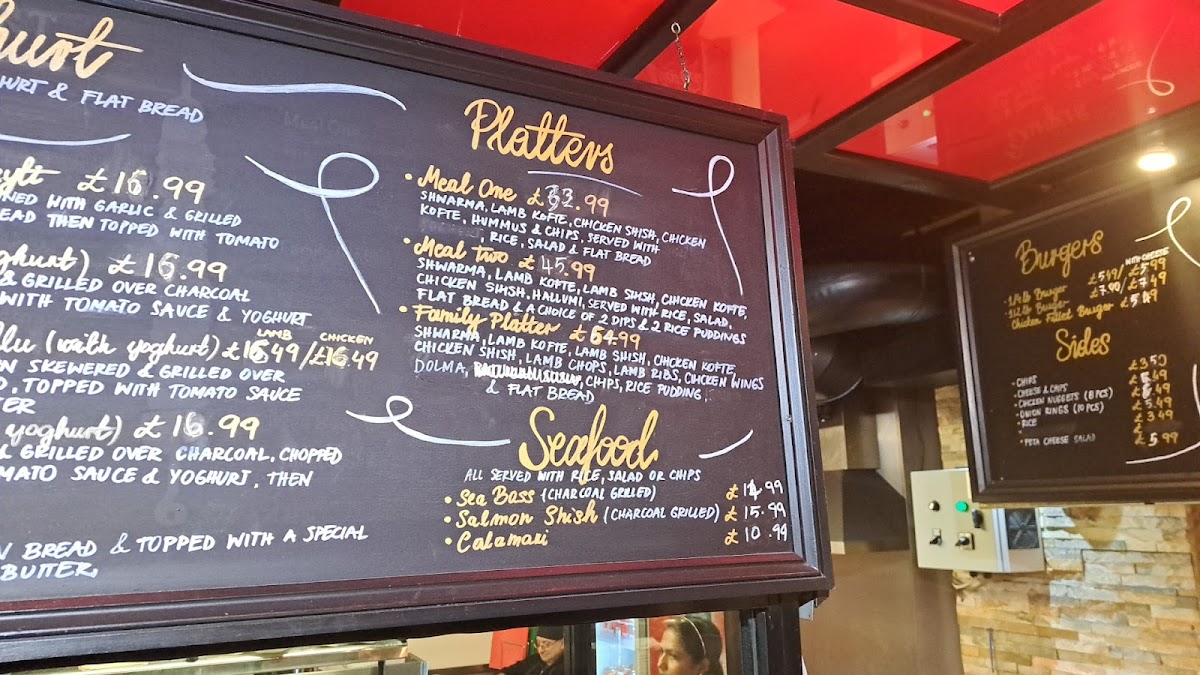 hurt
HURT & FLAT BREAD
£16.99
NED WITH GARLIC & GRILLED
EAD THEN TOPPED WITH TOMATO
ghurt) £16.99
& GRILLED OVER CHARCOAL
WITH TOMATO SAUCE & YOGHURT
LAMB CHICKEN
llu (with yoghurt) £16.49/£16.49
N SKEWERED & GRILLED OVER
D, TOPPED WITH TOMATO SAUCE
TER
yoghurt) £16.99
& GRILLED OVER CHARCOAL, CHOPPED
MATO SAUCE & YOGHURT, THEN
N BREAD & TOPPED WITH A SPECIAL
BUTTER,
Platters
• Meal One £32.99
SHWARMA, LAMB KOFTE, CHICKEN SHISH, CHICKEN
KOFTE, HUMMUS & CHIPS, SERVED WITH
, RICE, SALAD & FLAT BREAD
• Meal Two £45.99
SHWARMA, LAMB KOFTE, LAMB SHISH, CHICKEN KOFTE,
CHICKEN SHISH, HALLUMI, SERVED WITH RICE, SALAD,
FLAT BREAD & A CHOICE OF 2 DIPS & 2 RICE PUDDINGS
• Family Platter £64.99
SHWARMA, LAMB KOFTE, LAMB SHISH, CHICKEN KOFTE,
CHICKEN SHISH, LAMB CHOPS, LAMB RIBS, CHICKEN WINGS
DOLMA, CHIPS, RICE PUDDING,
& FLAT BREAD
Seafood
ALL SERVED WITH RICE, SALAD OR CHIPS
• Sea Bass (CHARCOAL GRILLED) £14.99
• Salmon Shish (CHARCOAL GRILLED) £15.99
• Calamari £10.99
Burgers
WITH CHEESE
• 1/4 lb Burger £5.49/£5.99
• 1/2 lb Burger £7.00/£7.49
Chicken Fillet Burger £5.49
Sides
• CHIPS £3.50
• CHEESE & CHIPS
• CHICKEN NUGGETS (8 PCS)
• ONION RINGS (10 PCS) £5.49
• RICE £3.49
• FETA CHEESE SALAD £5.99